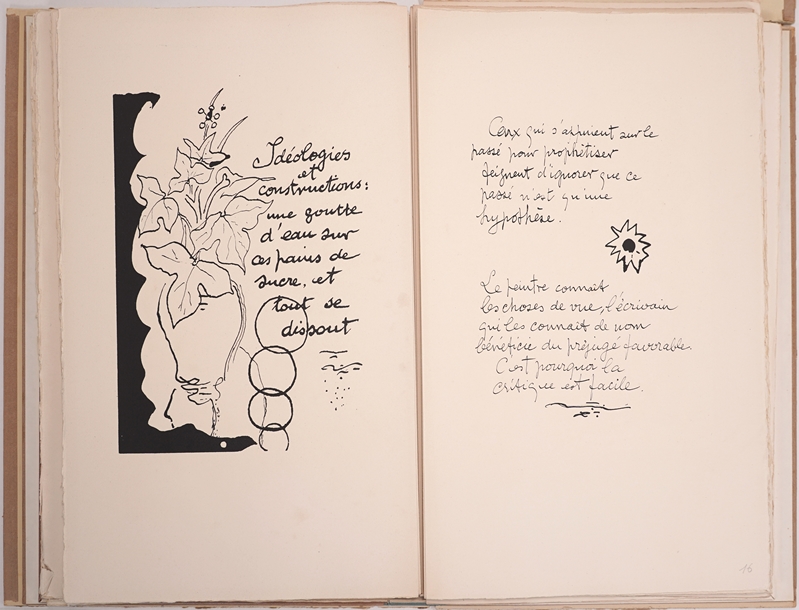 Idéologies
et
constructions:
une goutte
d'eau sur
ces pains de
sucre, et
tout se
dissout
Ceux qui s'appuient sur le
passé pour prophétiser
feignent d'ignorer que ce
passé n'est qu'une
hypothèse.
Le peintre connaît
les choses de vue, l'écrivain
qui les connaît de nom
bénéficie du préjugé favorable.
C'est pourquoi la
critique est facile.
15